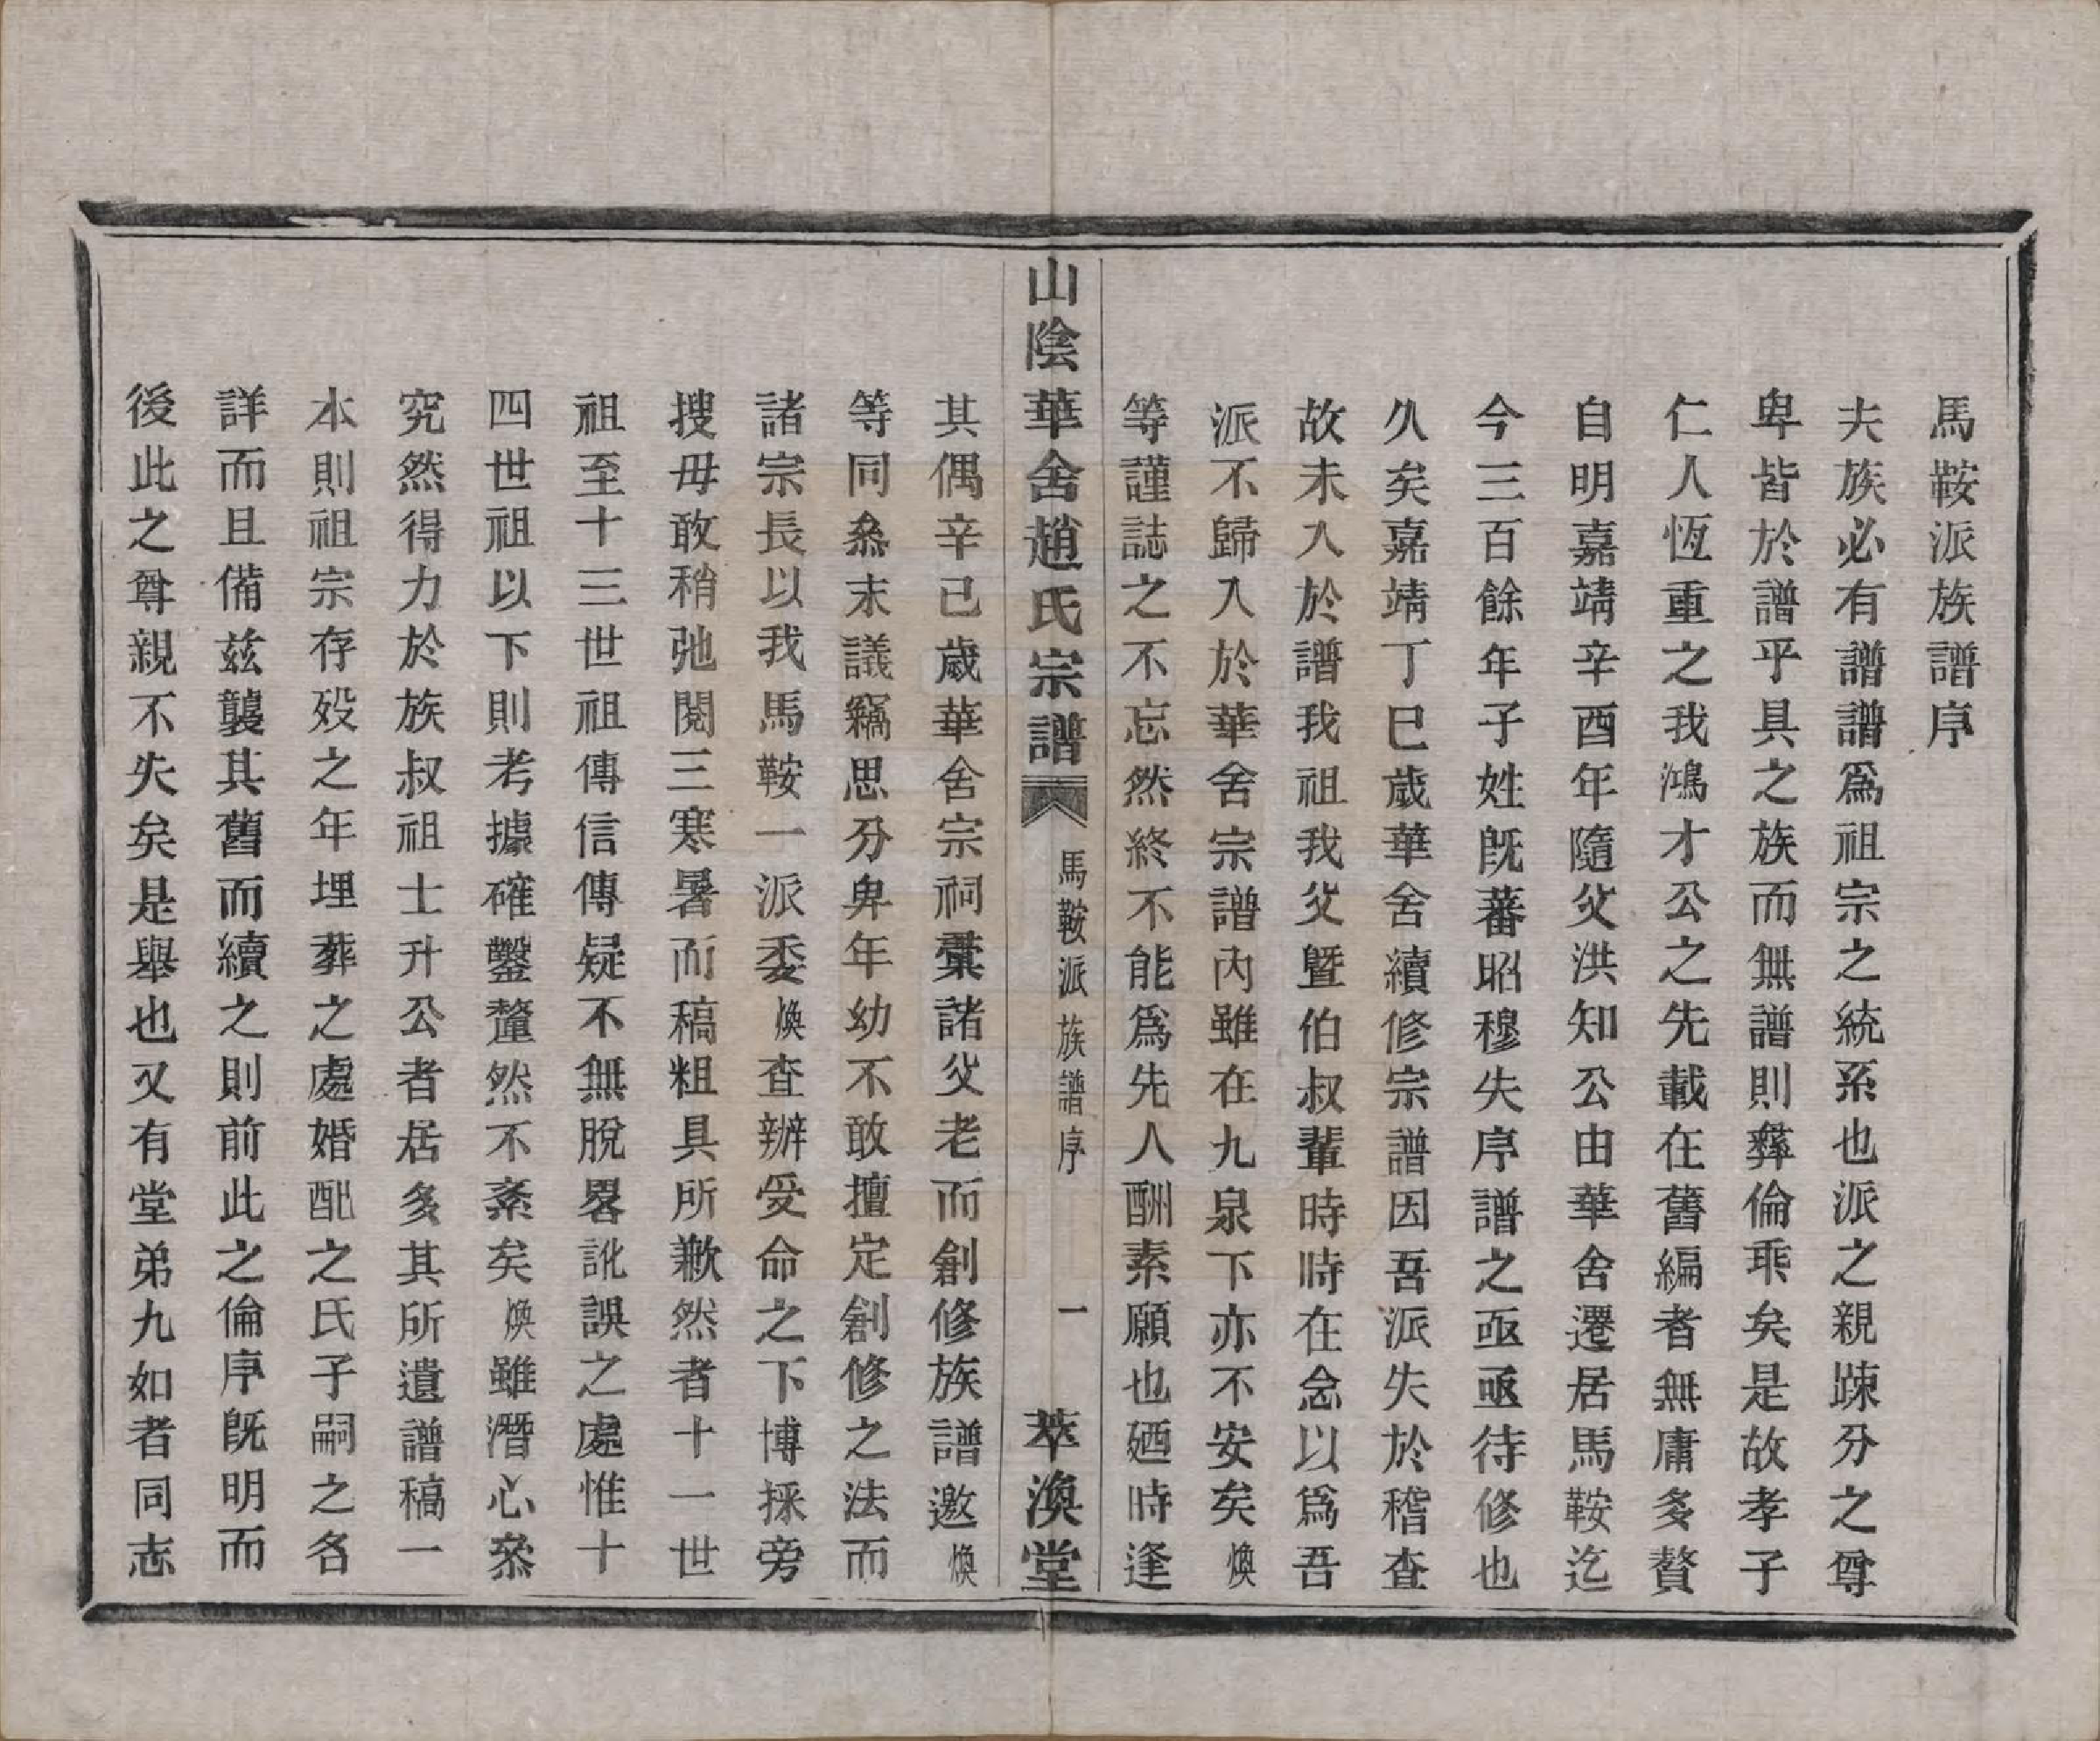 馬鞍派族譜序
夫族必有譜譜爲祖宗之統系也派之親疎分之尊
卑皆於譜乎具之族而無譜則彝倫乖矣是故孝子
仁人恆重之我鴻才公之先載在舊編者無庸多贅
自明嘉靖辛酉年隨父洪知公由華舍遷居馬鞍迄
今三百餘年子姓旣蕃昭穆失序譜之亟亟待修也
久矣嘉靖丁巳歲華舍續修宗譜因吾派失於稽查
故未入於譜我祖我父暨伯叔輩時時在念以爲吾
派不歸入於華舍宗譜內雖在九泉下亦不安矣煥
等謹誌之不忘然終不能爲先人酬素願也廼時逢
山陰華舍趙氏宗譜 馬鞍派族譜序 一 萃渙堂
其偶辛已歲華舍宗祠彙諸父老而創修族譜邀煥
等同叅末議竊思分卑年幼不敢擅定創修之法而
諸宗長以我馬鞍一派委煥查辦受命之下博採旁
搜毋敢稍弛閱三寒暑而稿粗具所歉然者十一世
祖至十三世祖傳信傳疑不無脫畧訛誤之處惟十
四世祖以下則考據確鑿釐然不紊矣煥雖潛心叅
究然得力於族叔祖士升公者居多其所遺譜稿一
本則祖宗存歿之年埋葬之處婚配之氏子嗣之名
詳而且備兹襲其舊而續之則前此之倫序旣明而
後此之尊親不失矣是舉也又有堂弟九如者同志